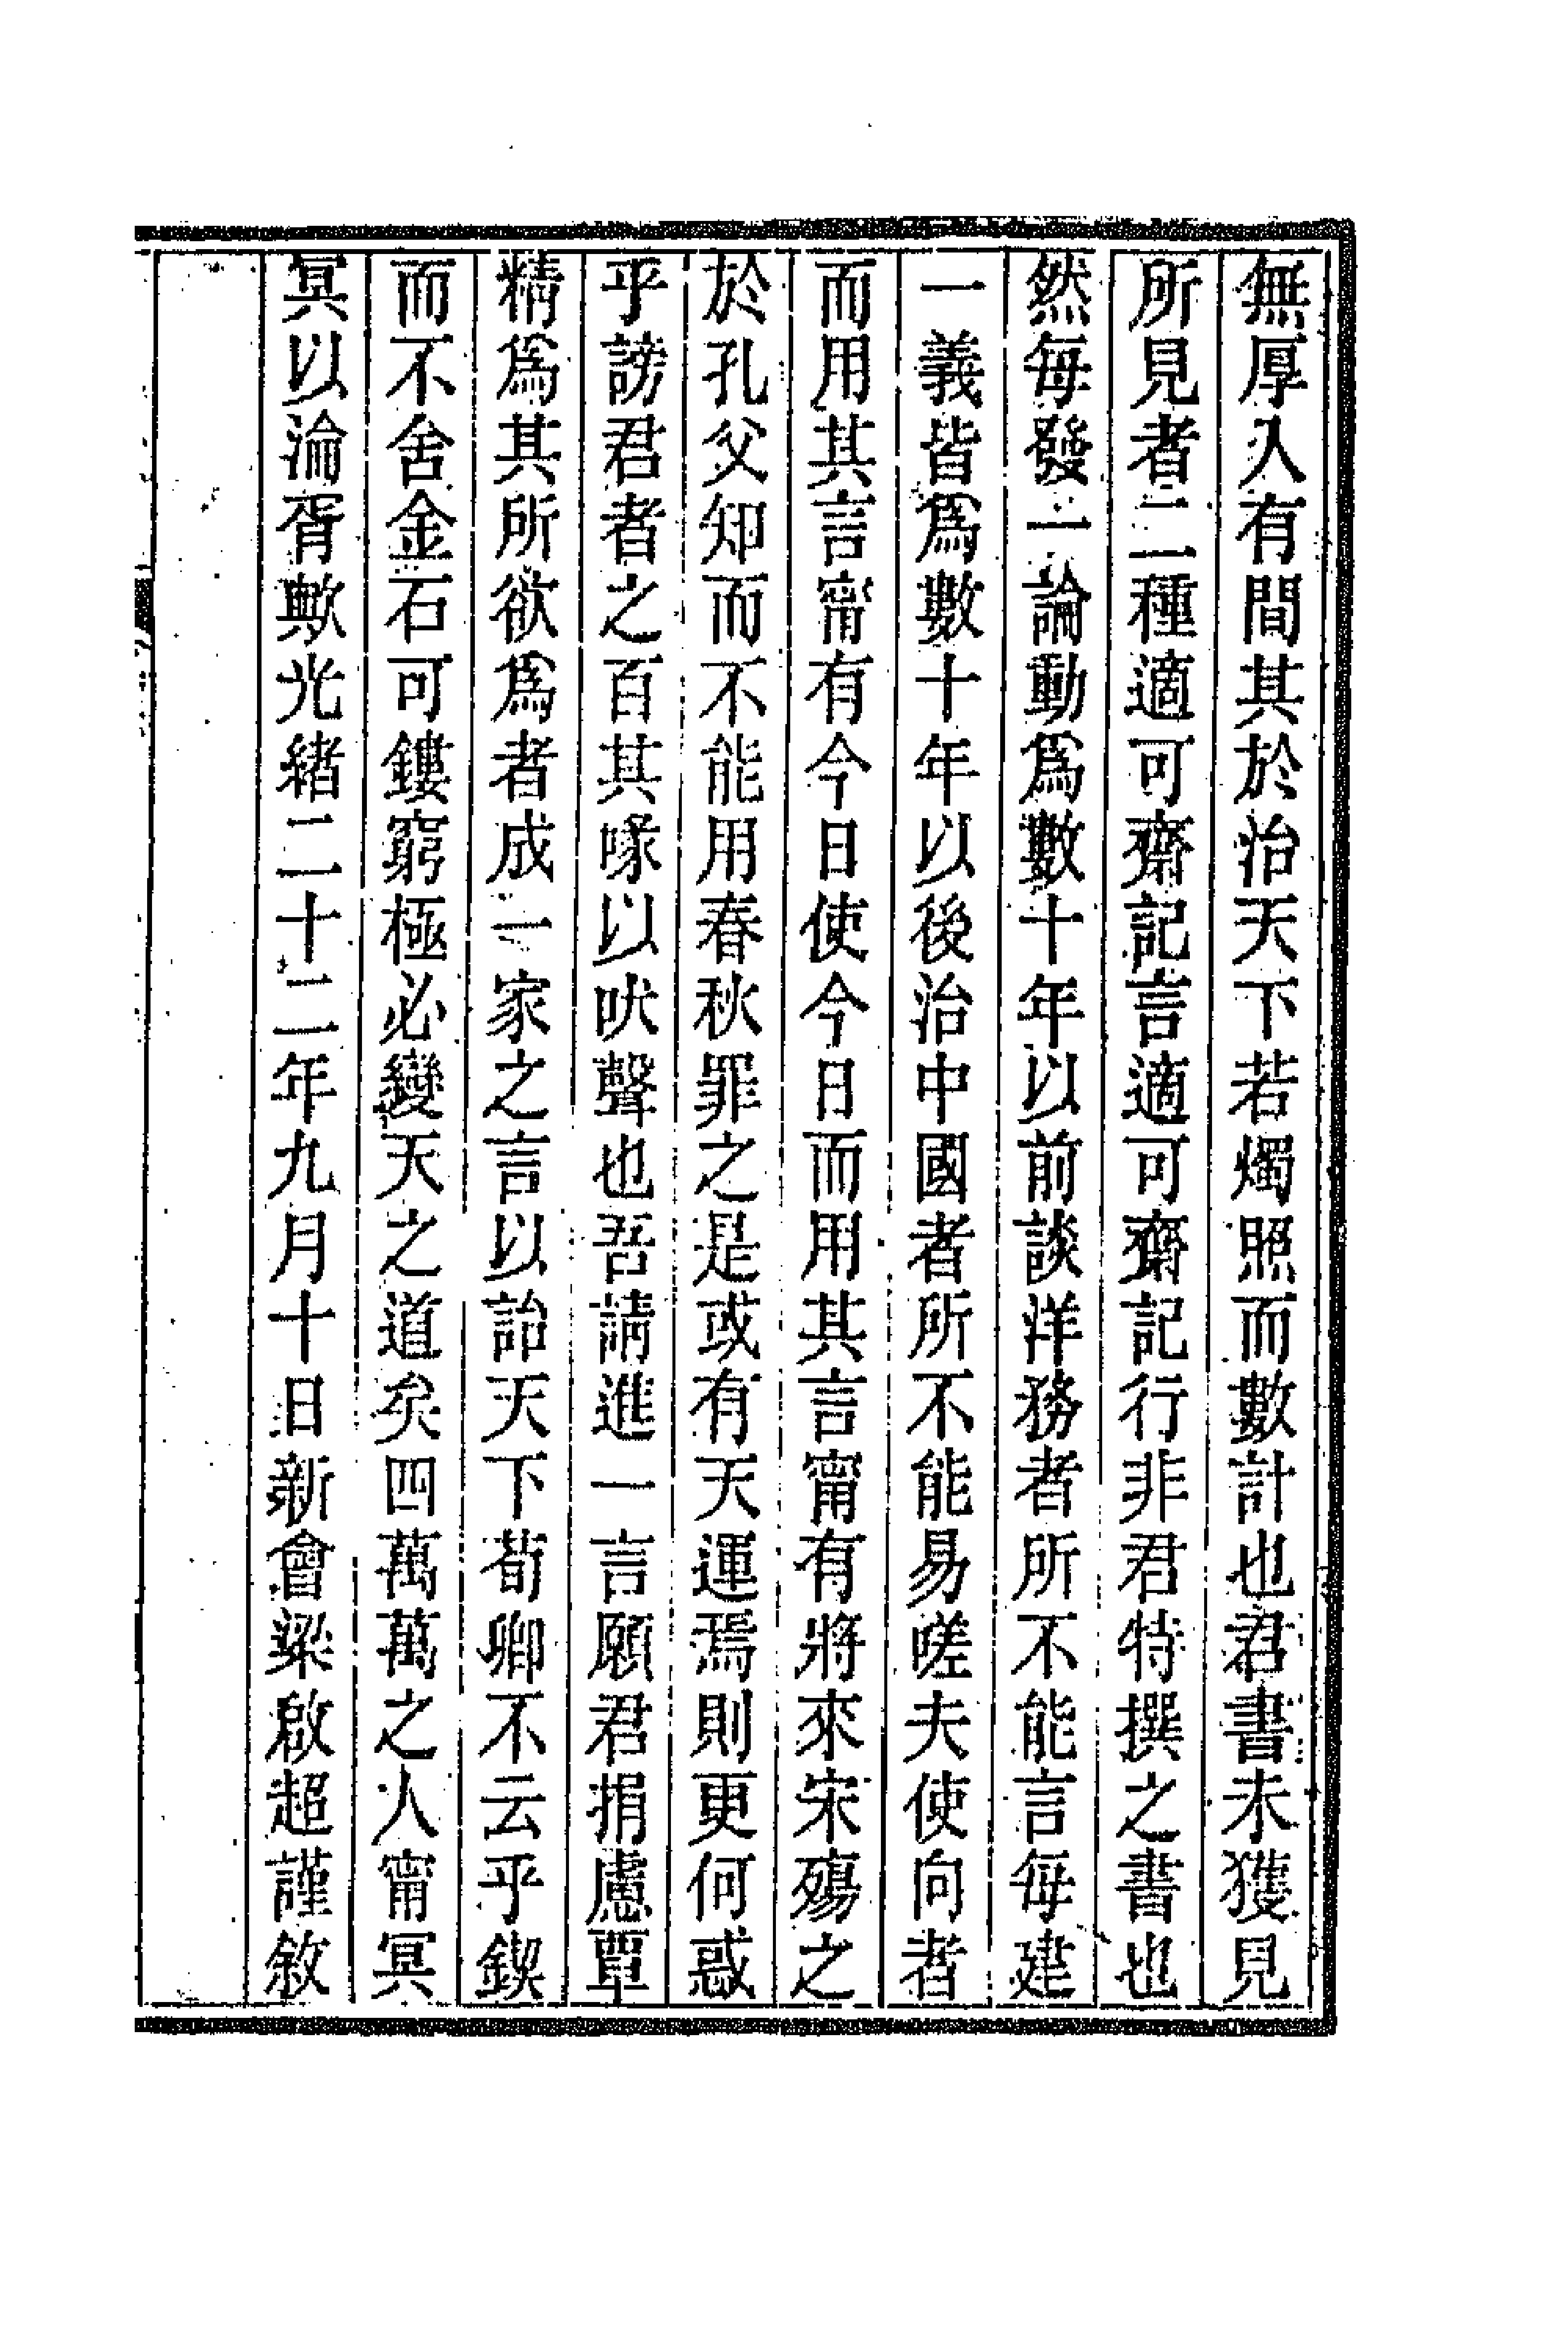 無厚入有間其於治天下若燭照而數計也君書未獲見
所見者二種適可齋記言適可齋記行非君特撰之書也
然每發一論動爲數十年以前談洋務者所不能言每建
一義皆爲數十年以後治中國者所不能易嗟夫使向者
而用其言甯有今日使今日而用其言甯有將來宋殤之
於孔父知而不能用春秋罪之是或有天運焉則更何惑
乎謗君者之百其喙以吠聲也吾請進一言願君捐慮覃
精爲其所欲爲者成一家之言以詒天下荀卿不云乎鍥
而不舍金石可鏤窮極必變天之道矣四萬萬之人甯冥
冥以淪胥歟光緒二十二年九月十日新會梁啟超謹敘